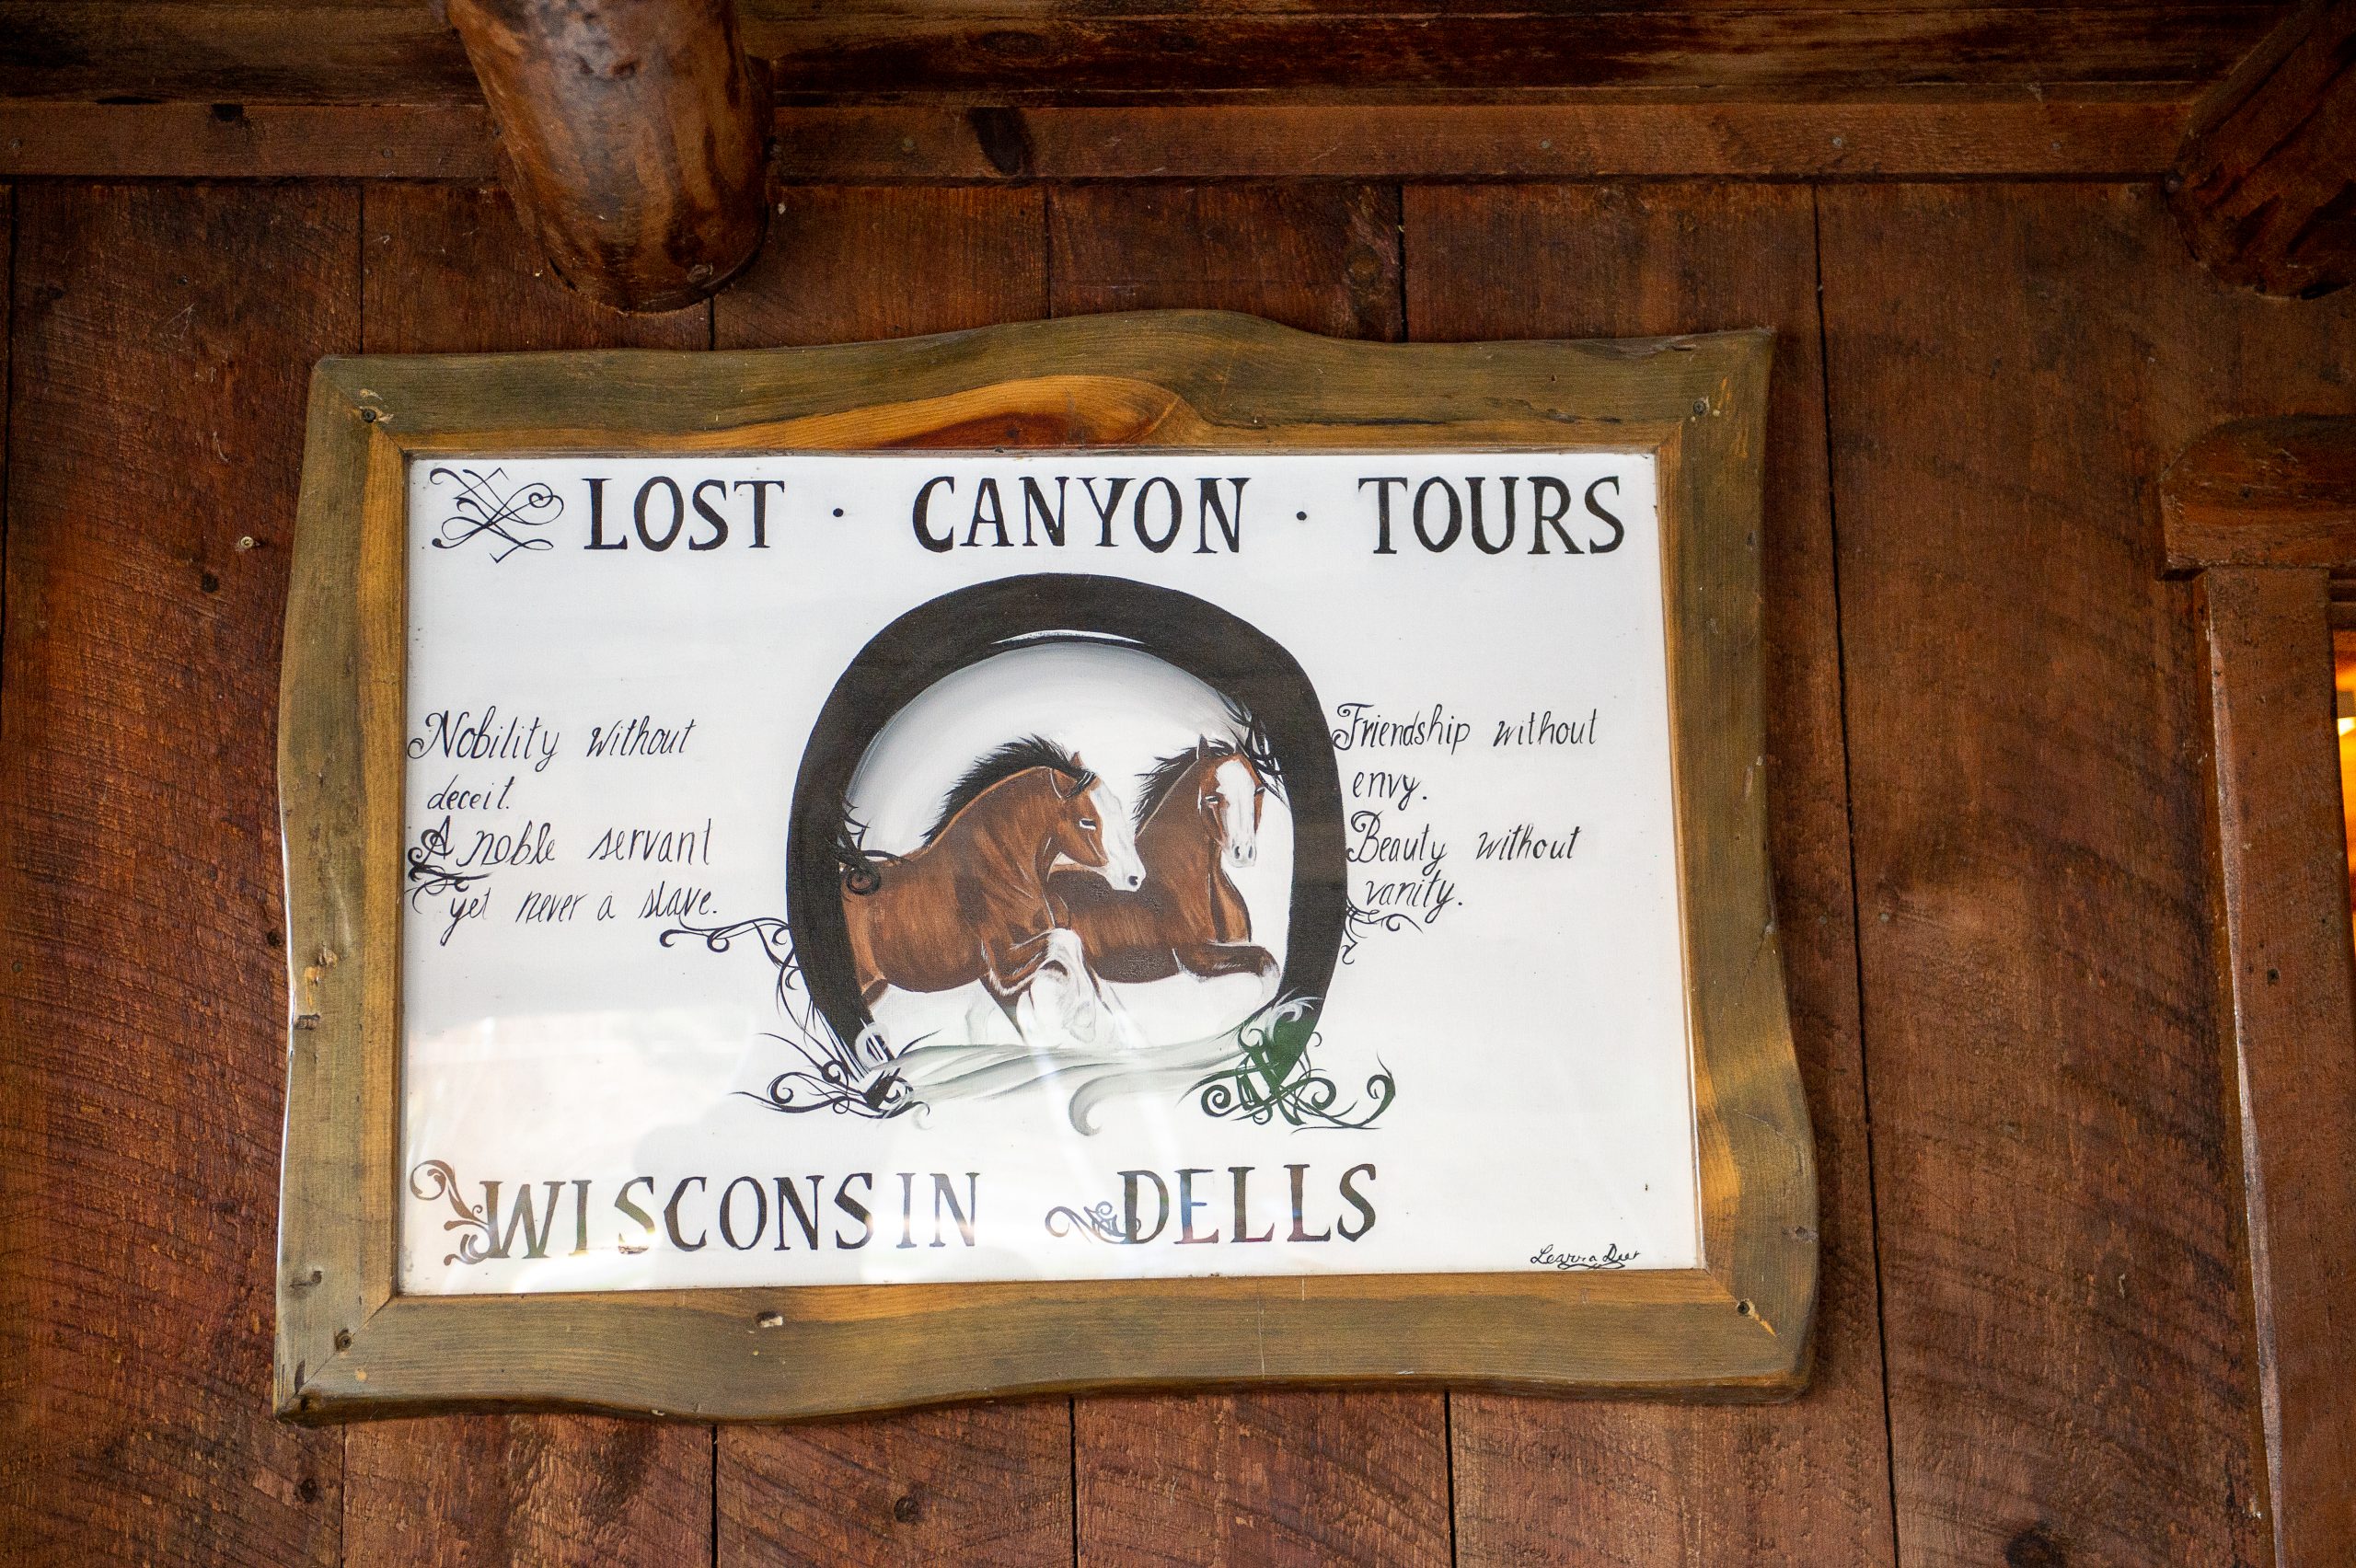 LOST · CANYON · TOURS
Nobility without
deceit.
A noble servant
yet never a slave.
Friendship without
envy.
Beauty without
vanity.
WISCONSIN DELLS